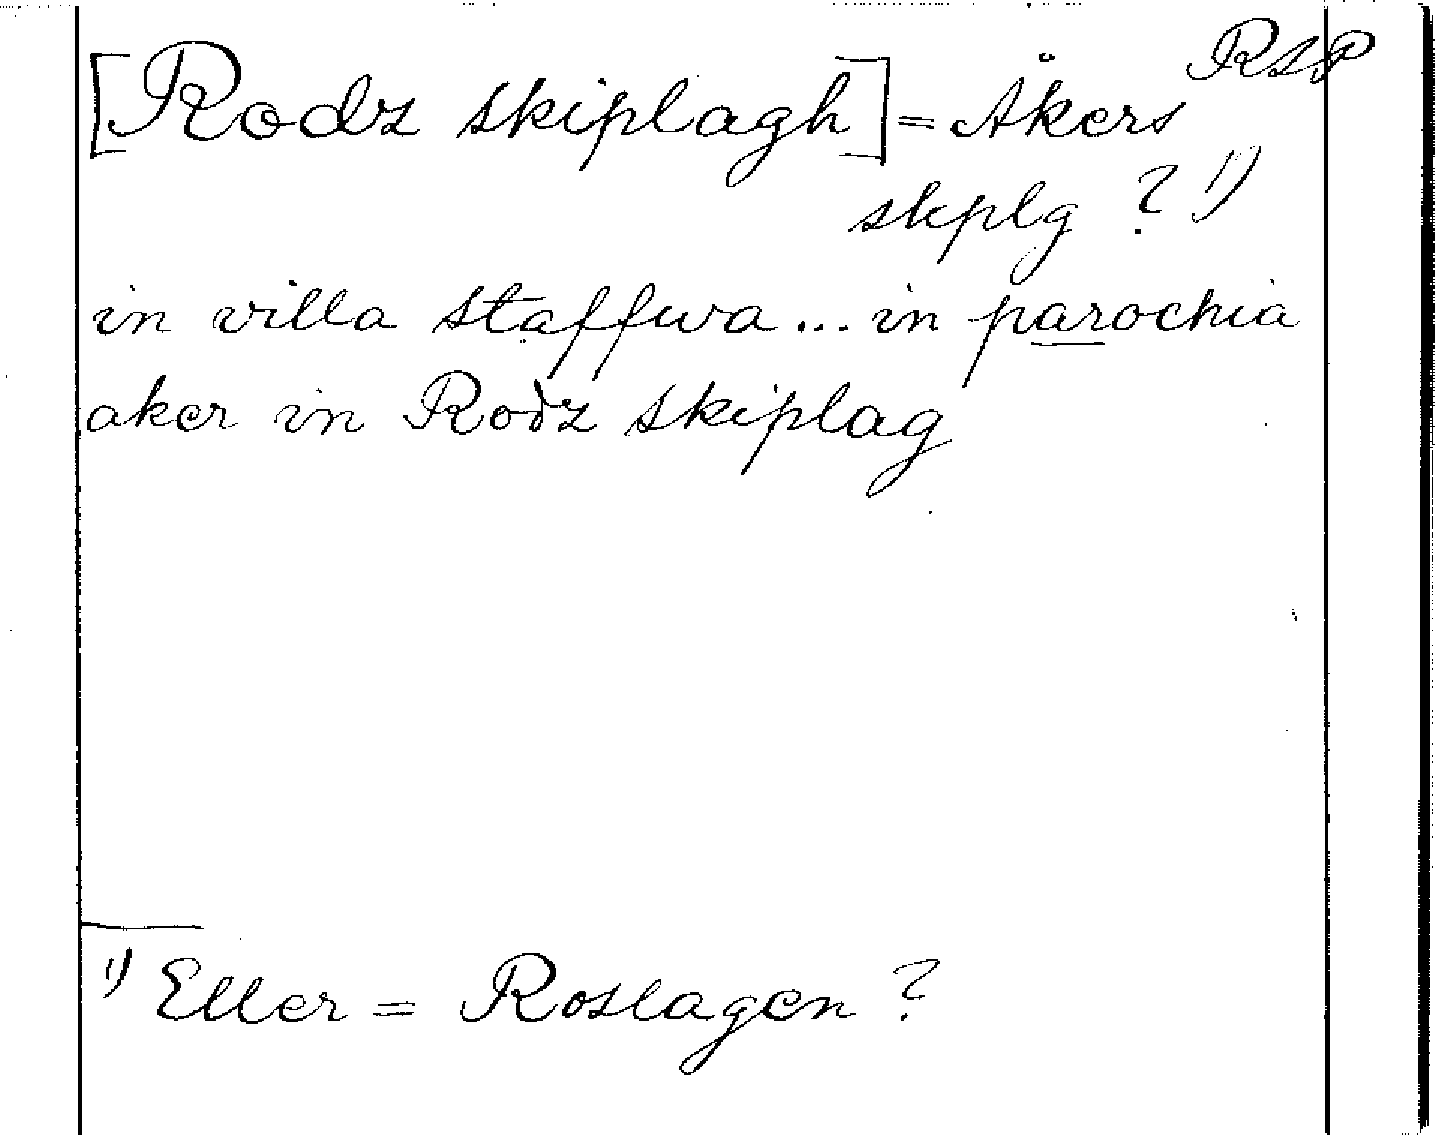 RAP
[Rodz skiplagh] = Åkers
skplg ? 1)
in villa staffwa ... in parochia
aker in Rodz skiplag
1) Eller = Roslagen ?